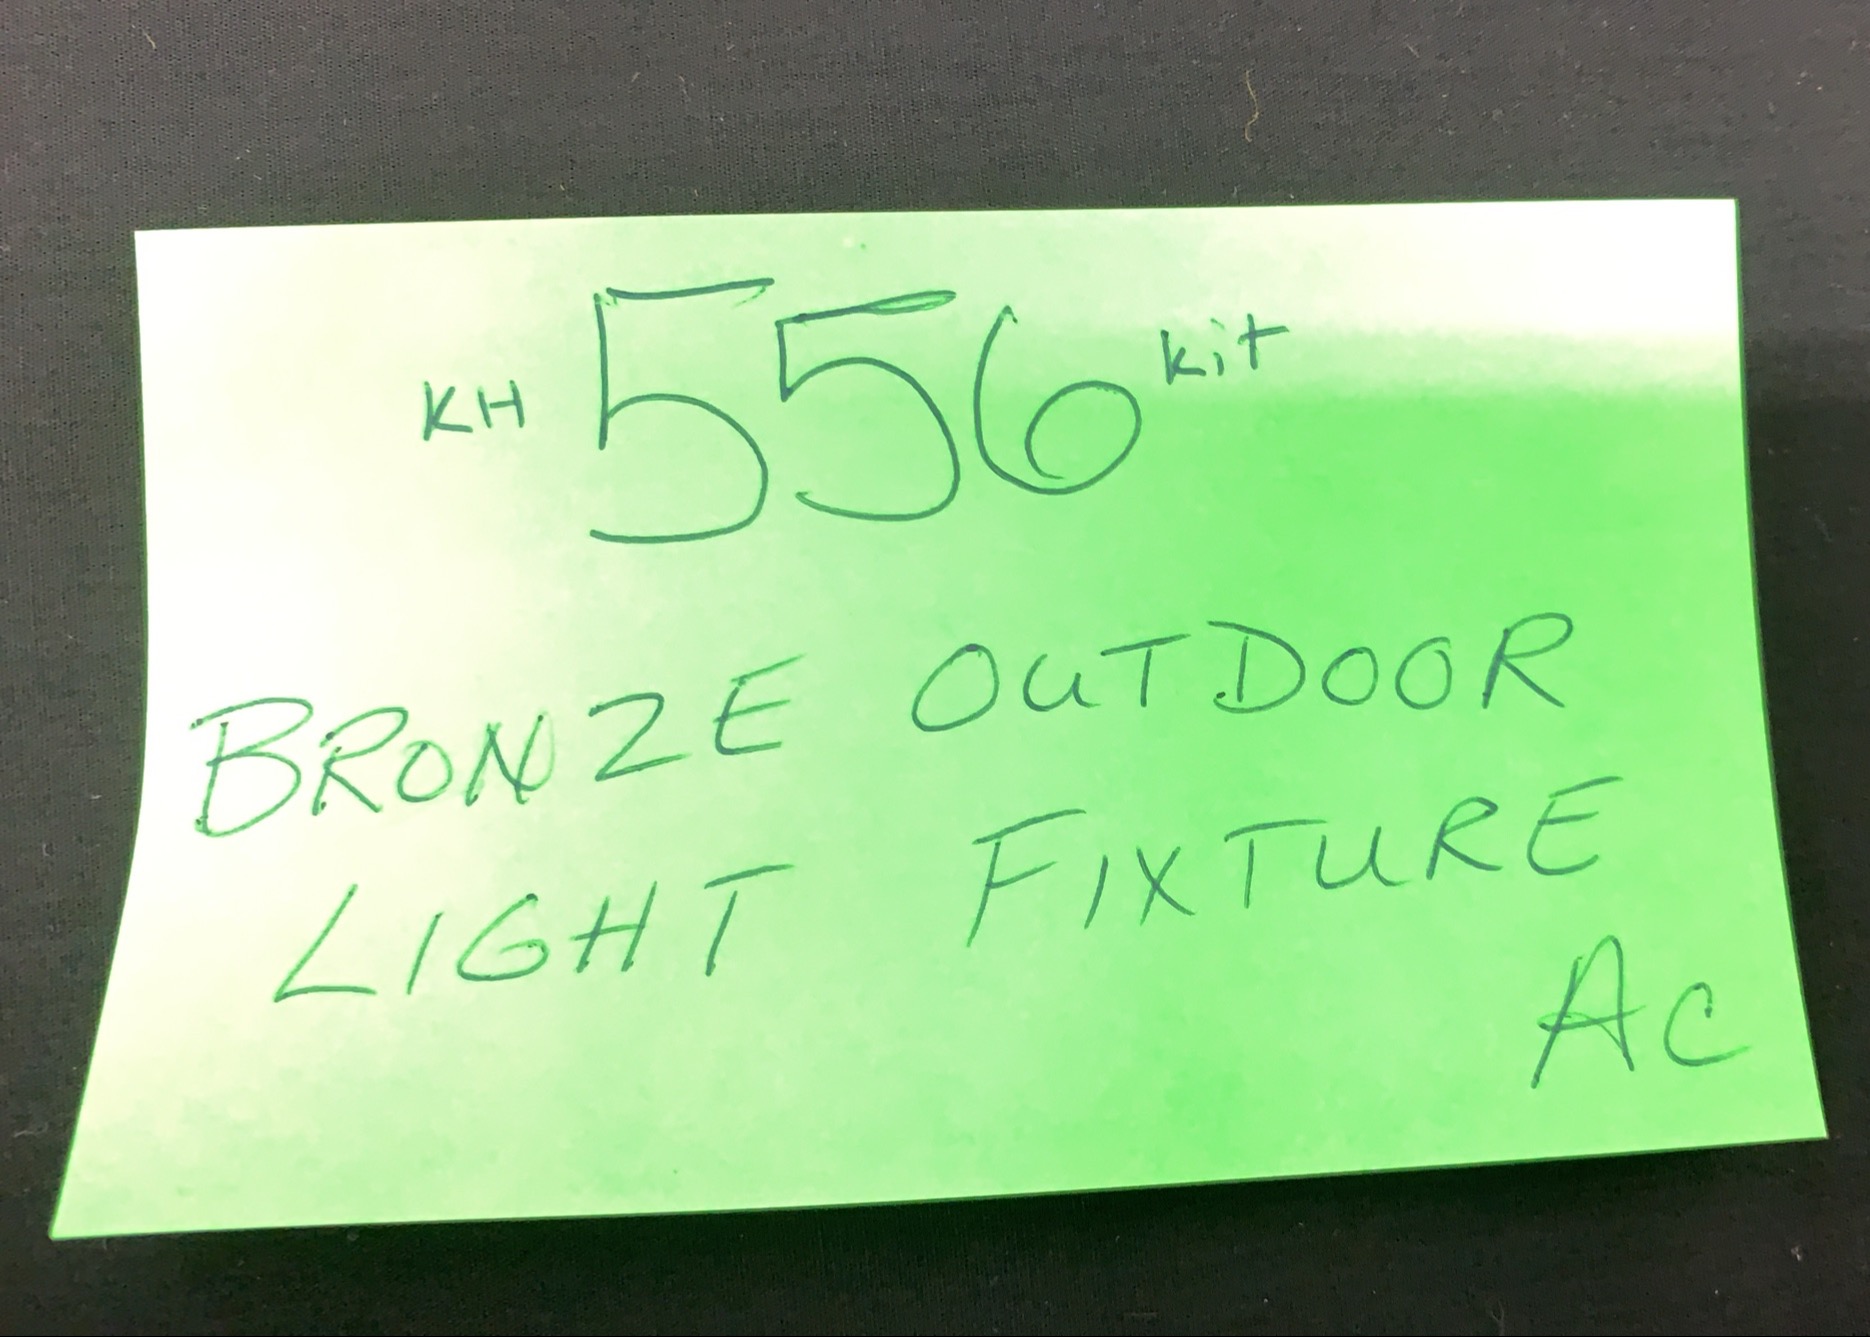 KH 556 Kit
BRONZE OUTDOOR
LIGHT FIXTURE
AC